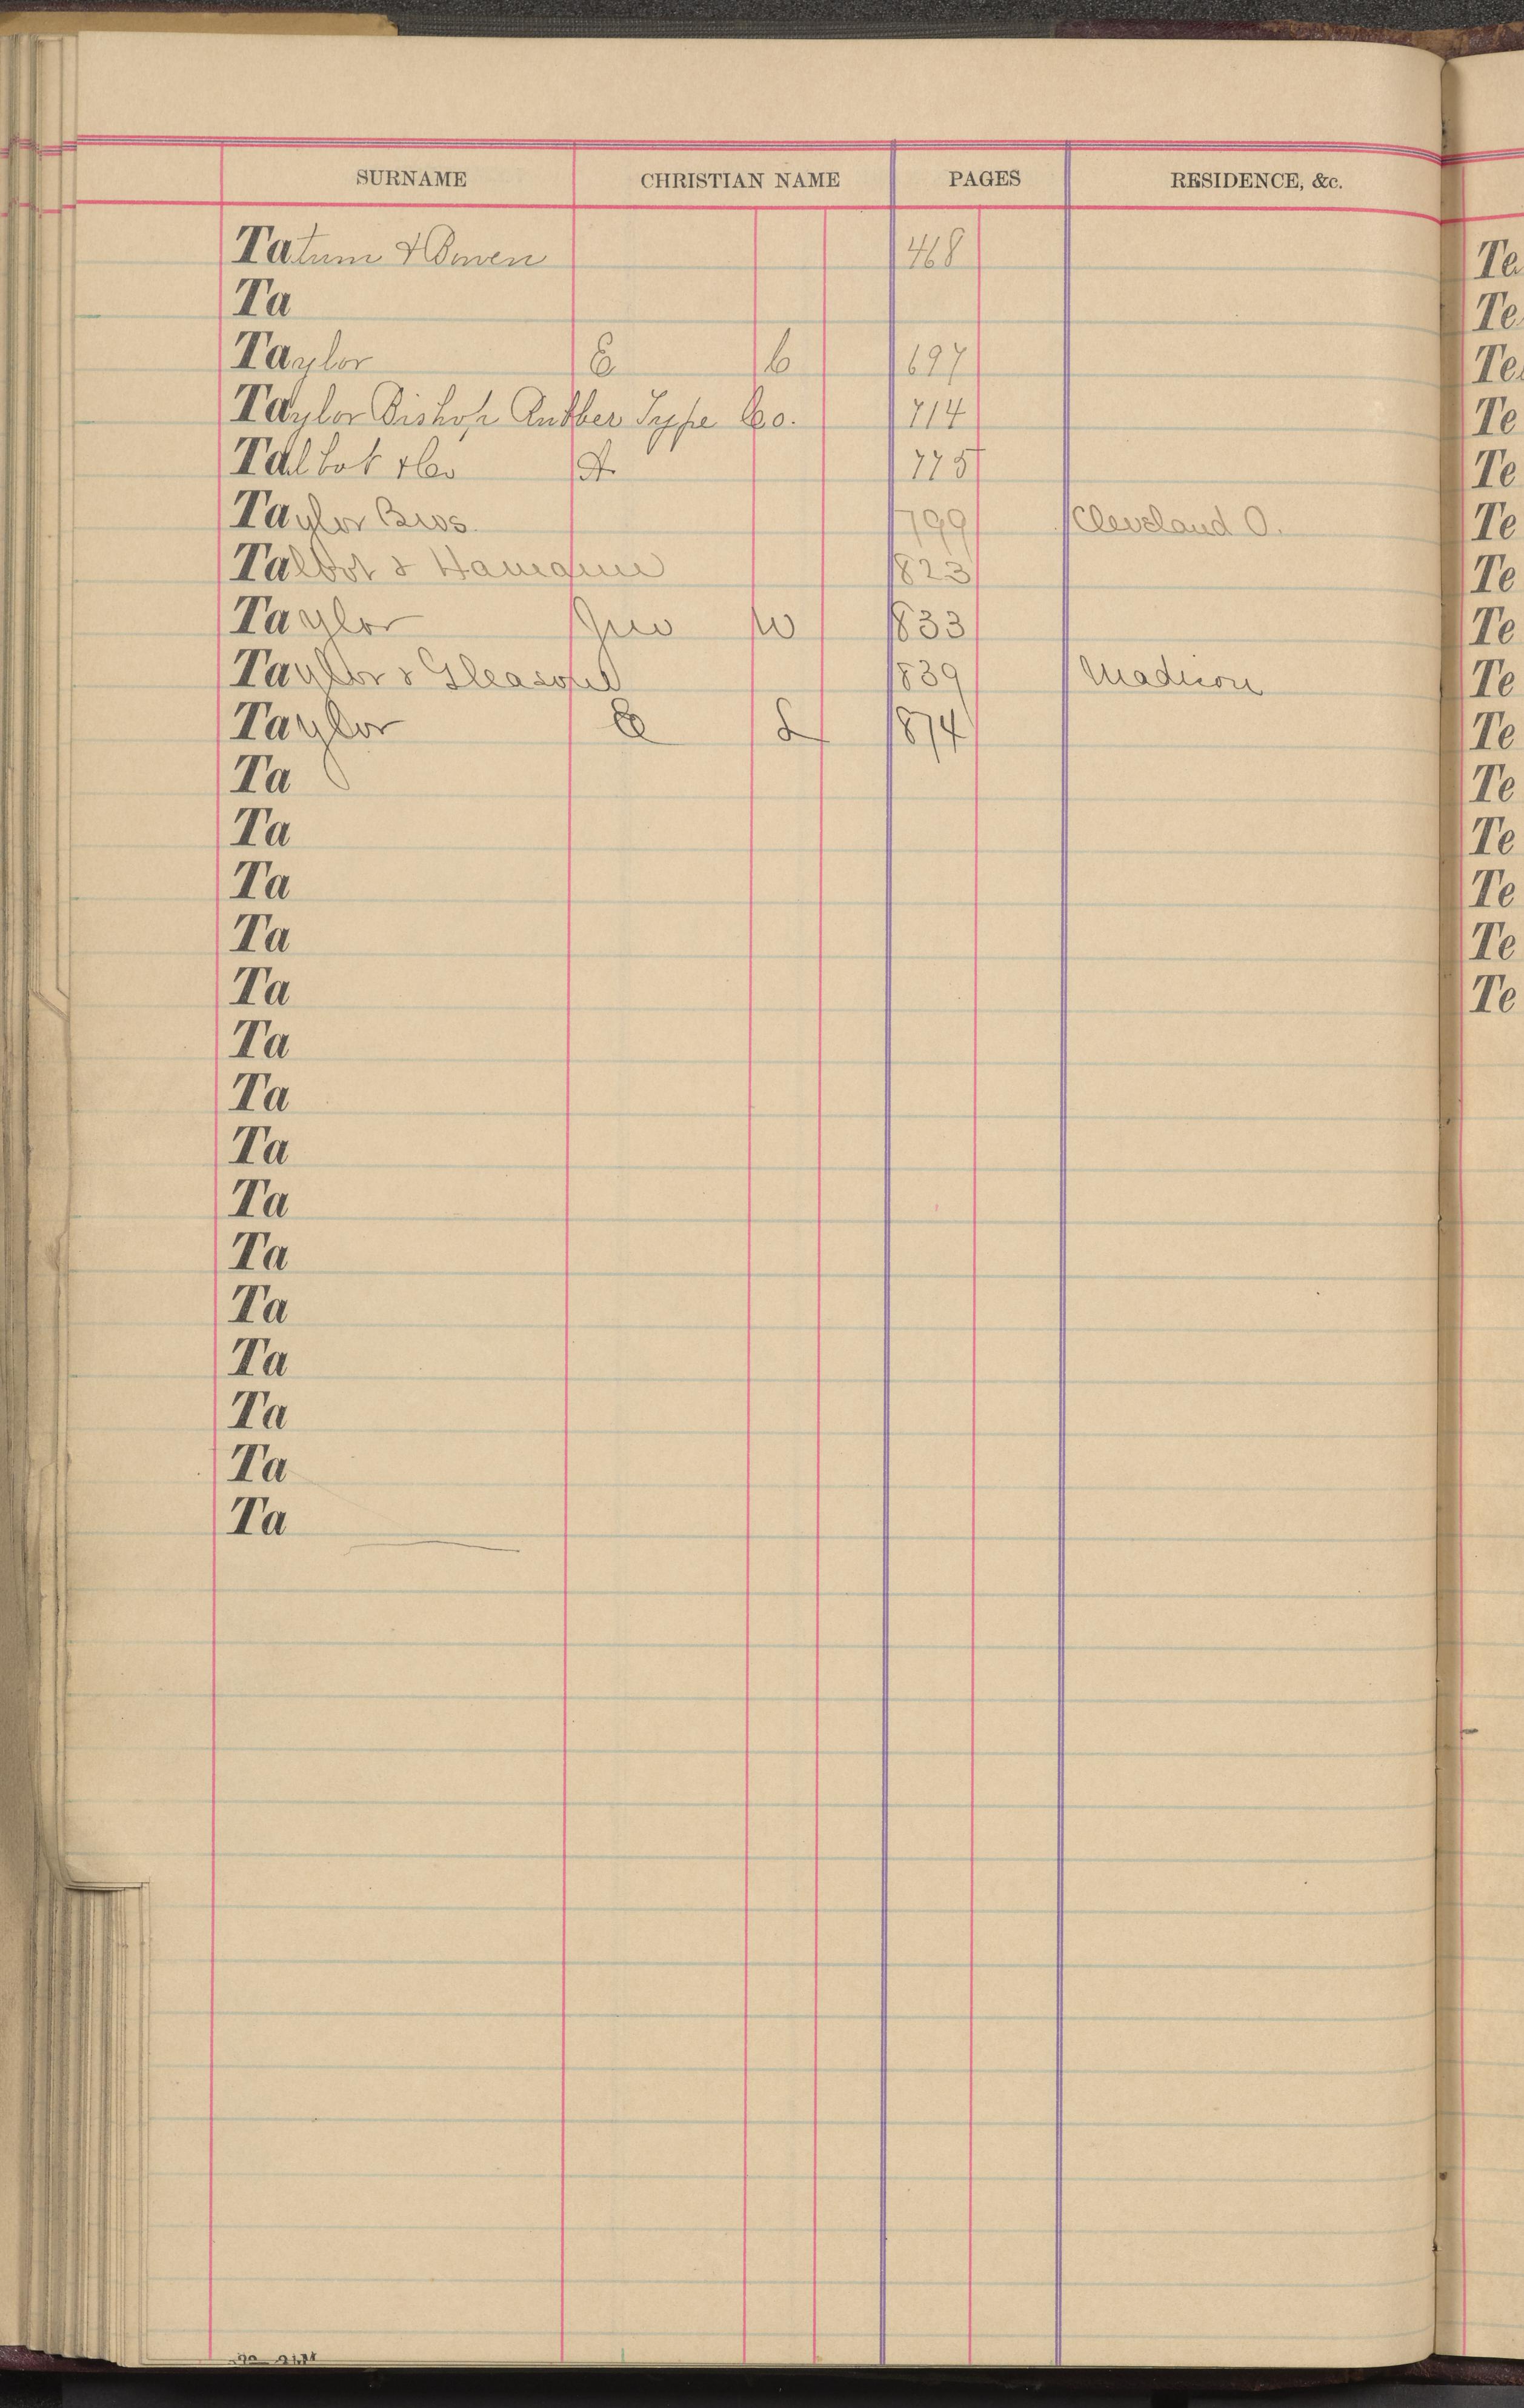 SURNAME CHRISTIAN NAME PAGES RESIDENCE, &c.
Tatum & Bowen 468
Ta
Taylor E C 697
Taylor Bishop Rubber Type Co. 714
Talbot & Co A. 775
Taylor Bros. 799 Cleveland O.
Talbot & 823
Taylor Jno W 833
Taylor & Gleason 839 Madison
Taylor E L 874
Ta
Ta
Ta
Ta
Ta
Ta
Ta
Ta
Ta
Ta
Ta
Ta
Ta
Ta
Ta
Te
Te
Te
Te
Te
Te
Te
Te
Te
Te
Te
Te
Te
Te
Te